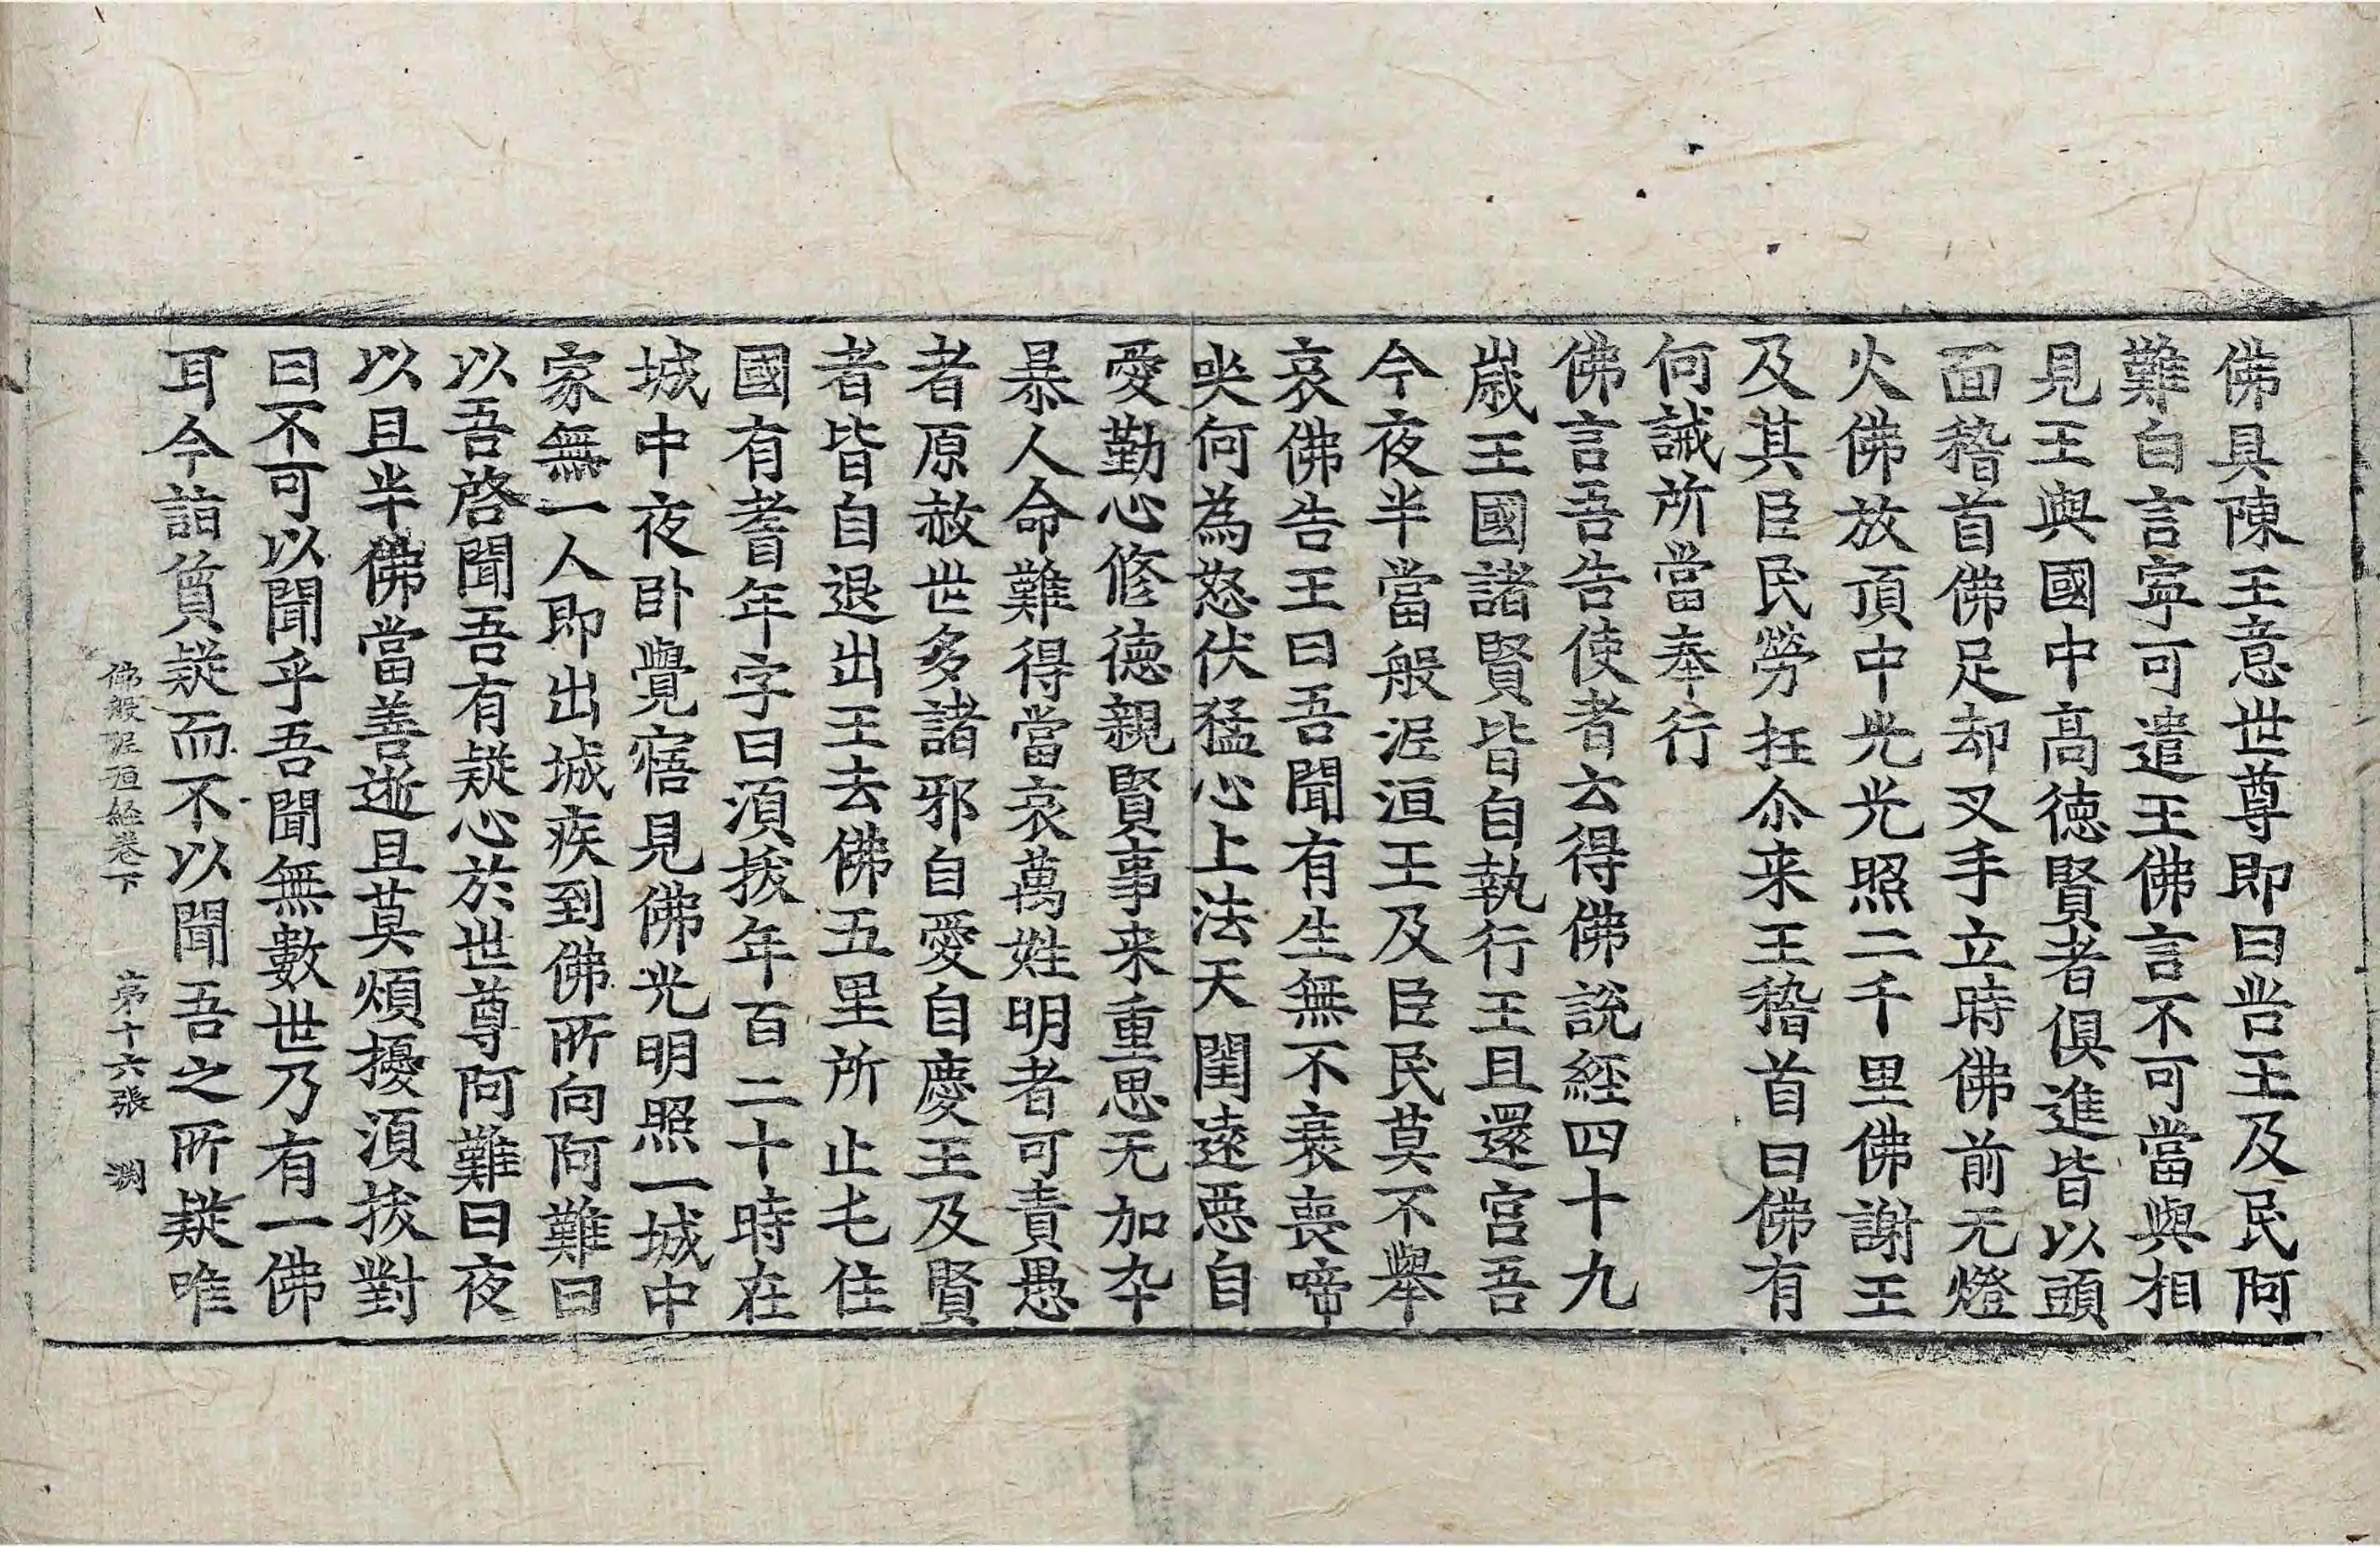 佛具陳王意世尊即曰咎王及民阿
難白言寧可遣王佛言不可當與相
見王與國中高德賢者俱進皆以頭
面稽首佛足却叉手立時佛前无燈
火佛放頂中光光照二千里佛謝王
及其臣民勞抂尒来王稽首曰佛有
何誡所當奉行
佛言吾告使者去得佛說經四十九
歲王國諸賢皆自執行王且還宮吾
今夜半當般泥洹王及臣民莫不舉
哀佛告王曰吾聞有生無不衰喪啼
哭何為怒伏猛心上法天閏遠惡自
愛勤心修德親賢事来重思无加夲
暴人命難得當哀萬姓明者可責愚
者原赦世多諸邪自愛自慶王及賢
者皆自退出王去佛五里所止七住
國有耆年字曰湏拔年百二十時在
城中夜卧覺寤見佛光明照一城中
家無一人即出城疾到佛所向阿難曰
以吾啓聞吾有疑心於世尊阿難曰夜
以且半佛當善逝且莫煩擾湏拔對
曰不可以聞乎吾聞無數世乃有一佛
耳今詣質疑而不以聞吾之所疑唯
佛般泥洹経卷下 第十六張 渕